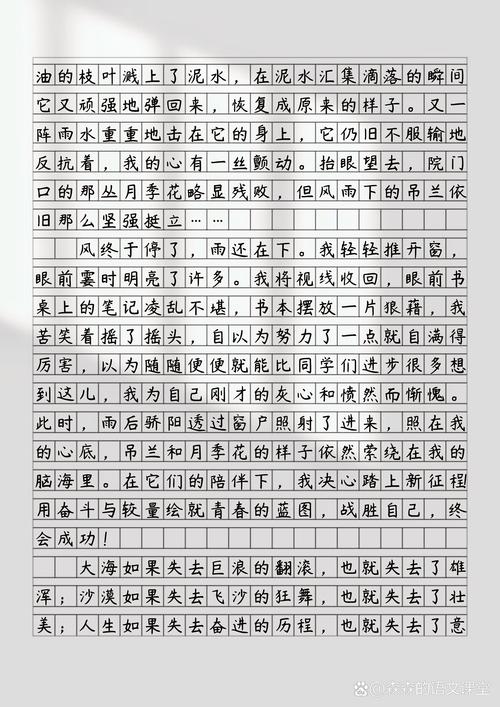 油的枝叶溅上了泥水，在泥水汇集滴落的瞬间
它又顽强地弹回来，恢复成原来的样子。又一
阵雨水重重地击在它的身上，它仍旧不服输地
反抗着，我的心有一丝颤动。抬眼望去，院门
口的那丛月季花略显残败，但风雨下的吊兰依
旧那么坚强挺立……
风终于停了，雨还在下。我轻轻推开窗，
眼前霎时明亮了许多。我将视线收回，眼前书
桌上的笔记凌乱不堪，书本摆放一片狼藉，我
苦笑着摇了摇头，自以为努力了一点就自满得
厉害，以为随随便便就能比同学们进步很多想
到这儿，我为自己刚才的灰心和愤然而惭愧。
此时，雨后骄阳透过窗户照射了进来，照在我
的心底，吊兰和月季花的样子依然萦绕在我的
脑海里。在它们的陪伴下，我决心踏上新征程
用奋斗与较量绘就青春的蓝图，战胜自己，终
会成功！
大海如果失去巨浪的翻滚，也就失去了雄
浑；沙漠如果失去飞沙的狂舞，也就失去了壮
美；人生如果失去奋进的历程，也就失去了意
森森的语文课堂